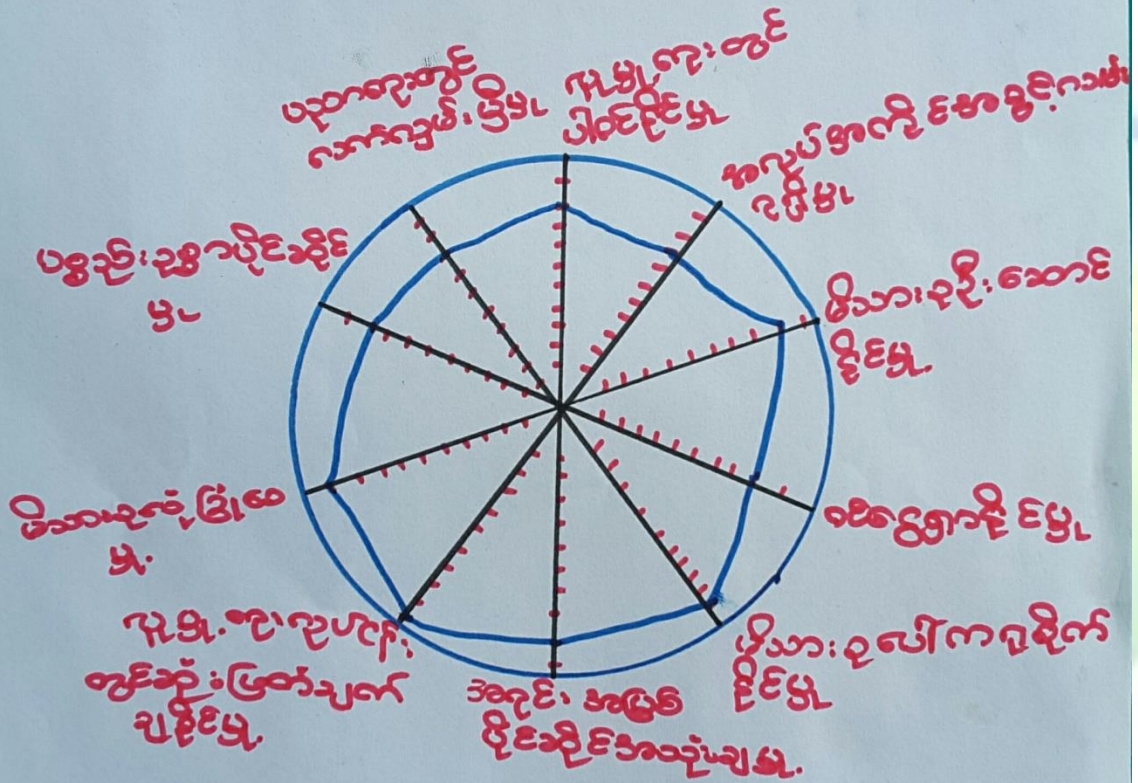 ပညာရေးတွင်
ထောက်ကူမှု ရှိမှု
လူမှုရေးတွင်
ပါဝင်နိုင်မှု
အလုပ်အကိုင်အခွင့်အလမ်း
ရရှိမှု
မိသားစုဦးဆောင်
နိုင်မှု
ဝင်ငွေရှာနိုင်မှု
မိသားစုပေါ်ဂရုစိုက်
နိုင်မှု
အရင်းအမြစ်
ပိုင်ဆိုင်အသုံးချမှု
တွင်ဆုံးဖြတ်ချက်
ချနိုင်မှု
မိသားစုလုံခြုံစေ
မှု
ပစ္စည်းဥစ္စာပိုင်ဆိုင်
မှု